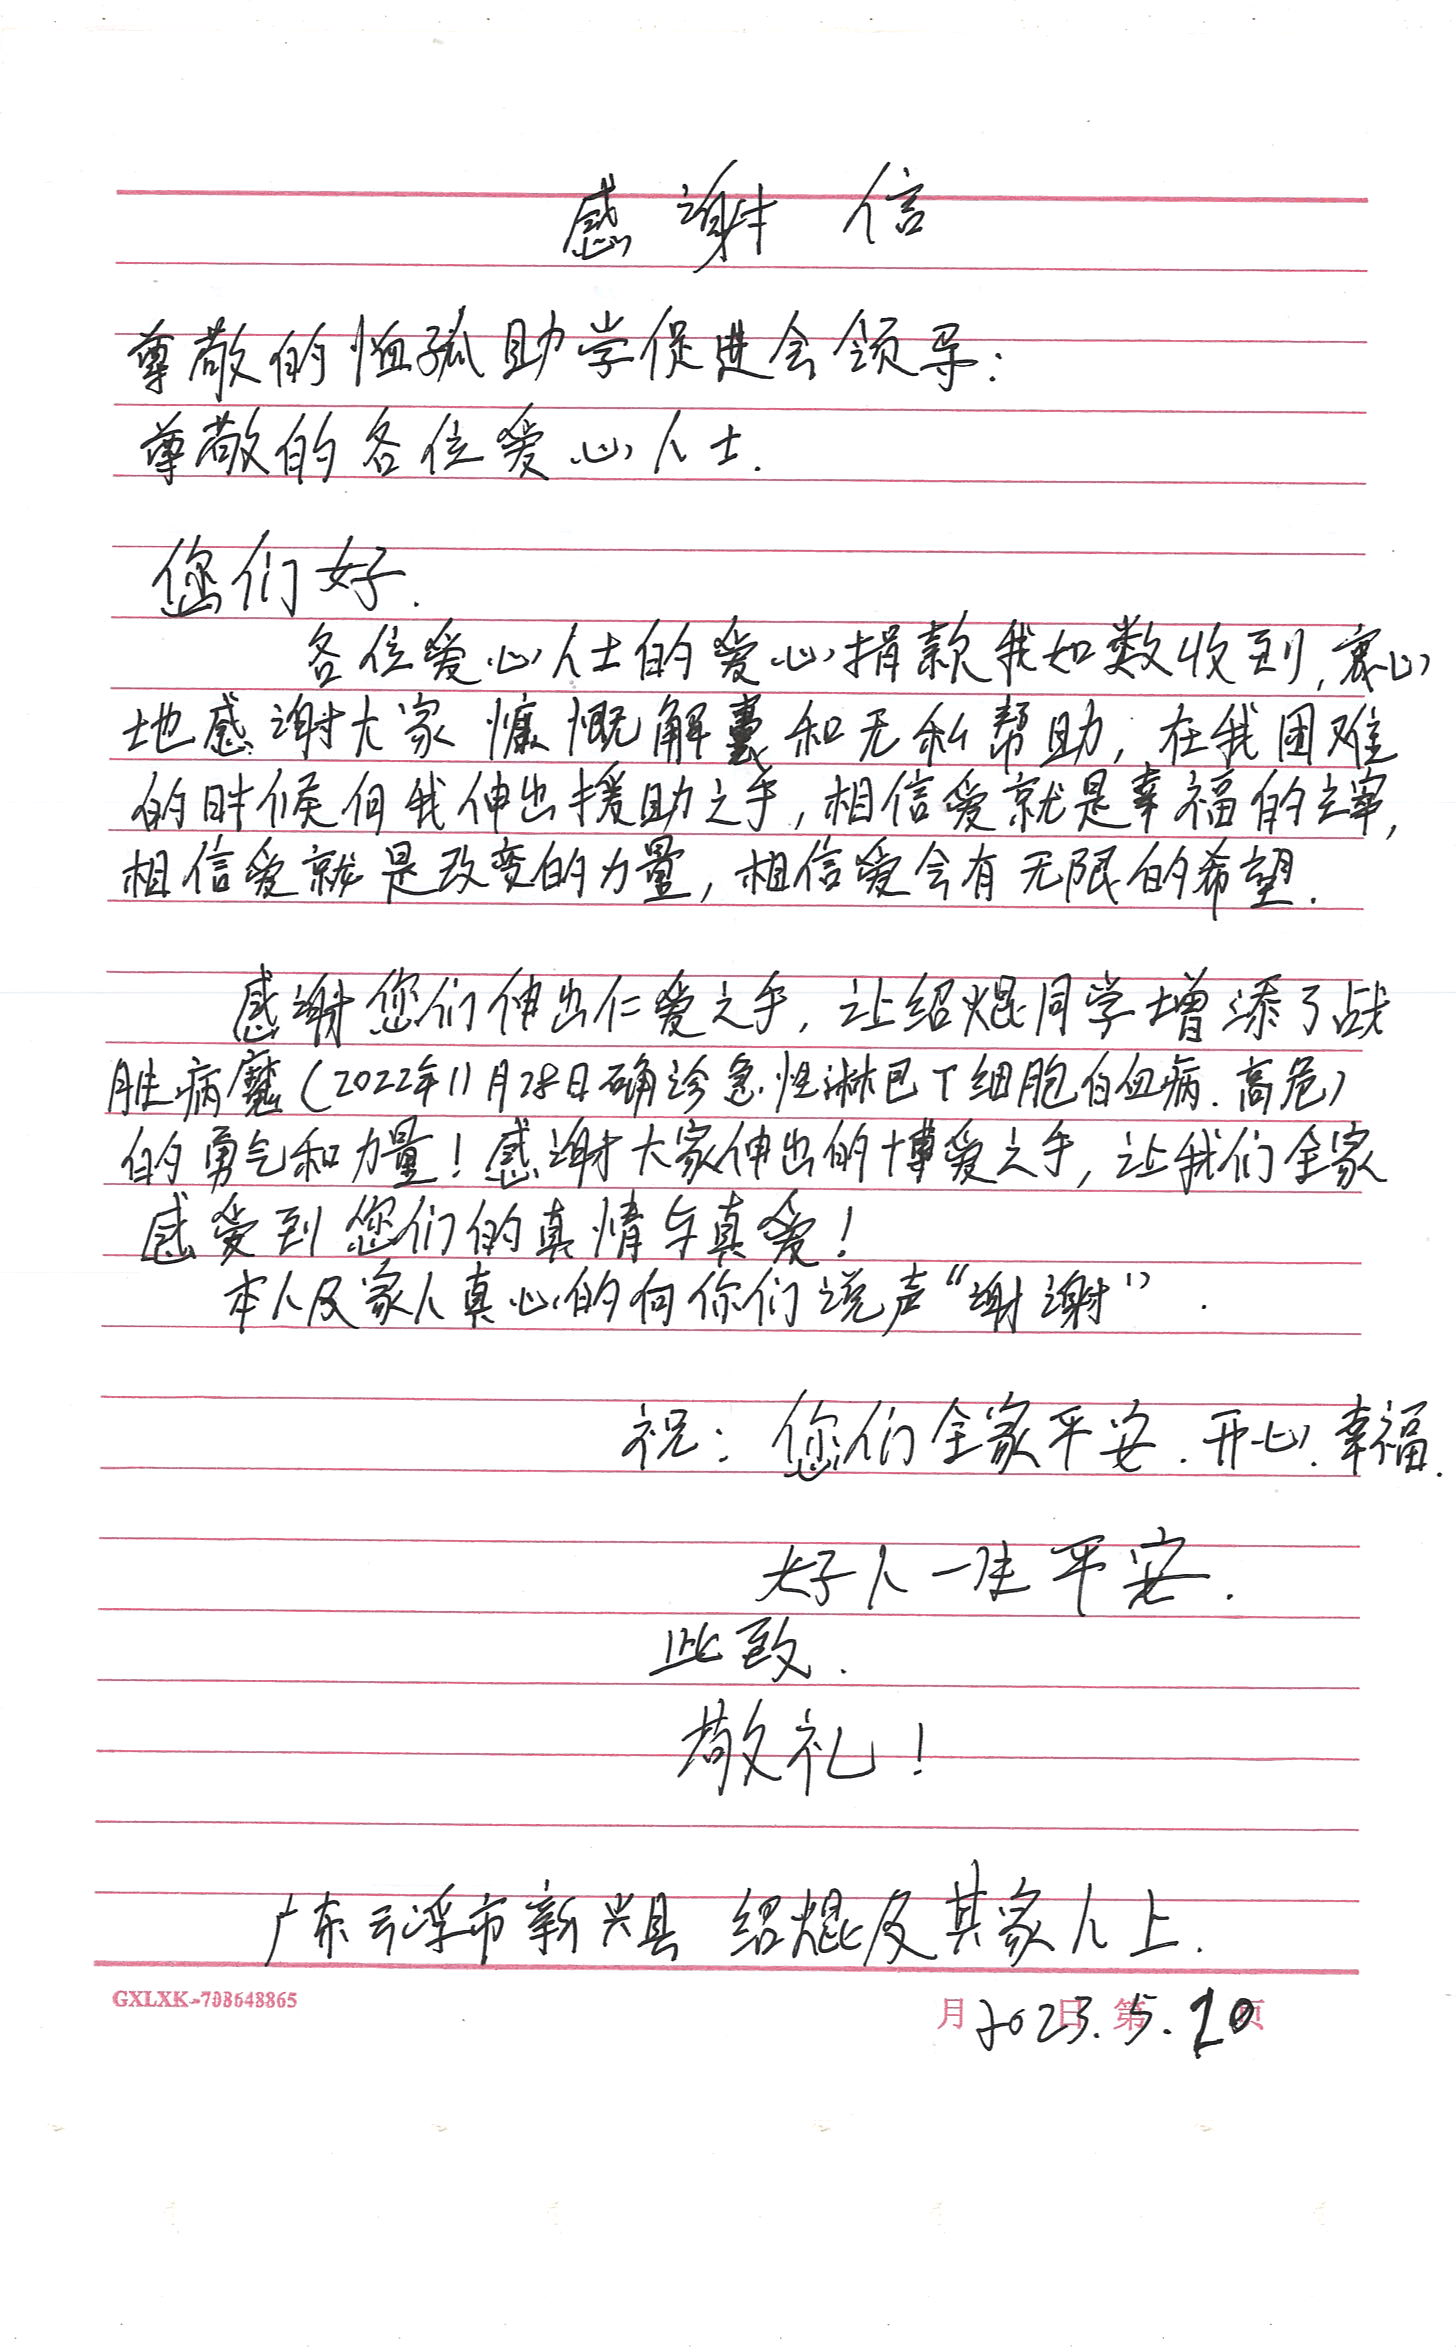 感谢信
尊敬的恤孤助学促进会领导:
尊敬的各位爱心人士.
您们好.
各位爱心人士的爱心捐款我如数收到,衷心
地感谢大家慷慨解囊和无私帮助,在我困难
的时候向我伸出援助之手,相信爱就是幸福的主宰,
相信爱就是改变的力量,相信爱会有无限的希望.
感谢您们伸出仁爱之手,让绍焜同学增添了战
胜病魔(2022年11月28日确诊急性淋巴T细胞白血病.高危)
的勇气和力量!感谢大家伸出的博爱之手,让我们全家
感受到您们的真情与真爱!
本人及家人真心的向你们说声“谢谢”.
祝:您们全家平安.开心.幸福.
好人一生平安.
此致.
敬礼!
广东云浮市新兴县 绍焜及其家人上.
GXLXK-703648865
月 日 第 页
2023.5.20